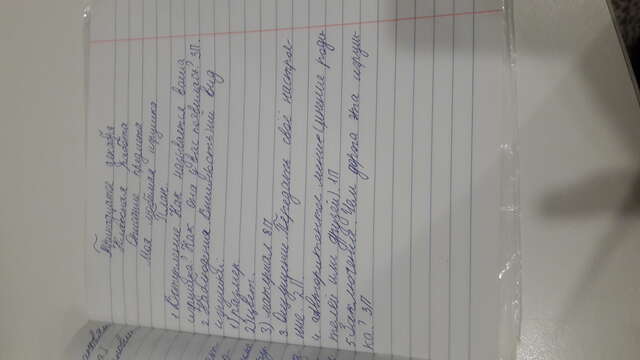 Тринадцатое декабря
Классная работа
Описание предмета
Моя любимая игрушка
План.
1 Вступление Как называется ваша
игрушка? Как она у вас появилась? 3П.
2. Наблюдения Внешность вид
игрушки:
1) размер.
2) цвет.
3) материал 8П
3. Ощущение. Передать своё настрое-
ние. 2П.
4. Авторитетное мение (мнение роди-
телей или друзей) 1П
5 Заключение. Чем дорога эта игруш-
ка? 3П